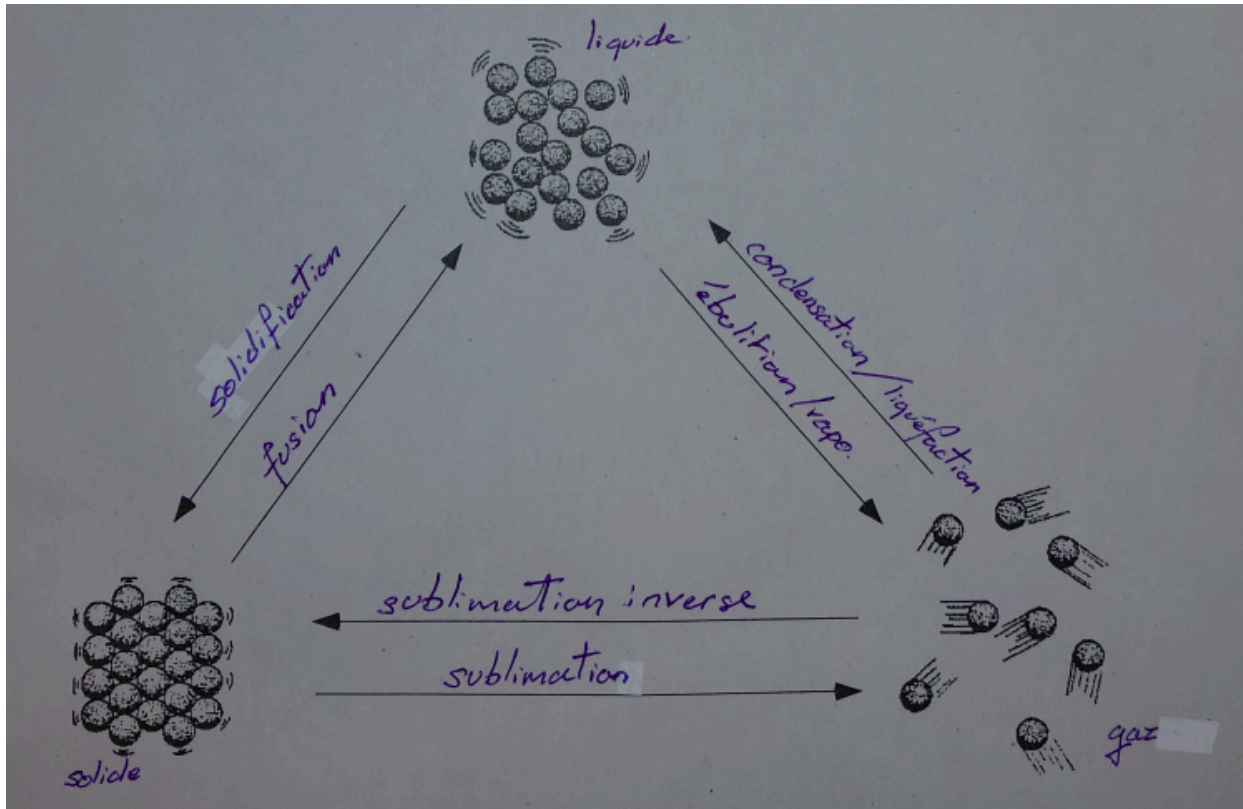 liquide.
solidification
fusion
condensation/liquéfaction
ébulition/vapo.
sublimation inverse
sublimation
solide
gaz